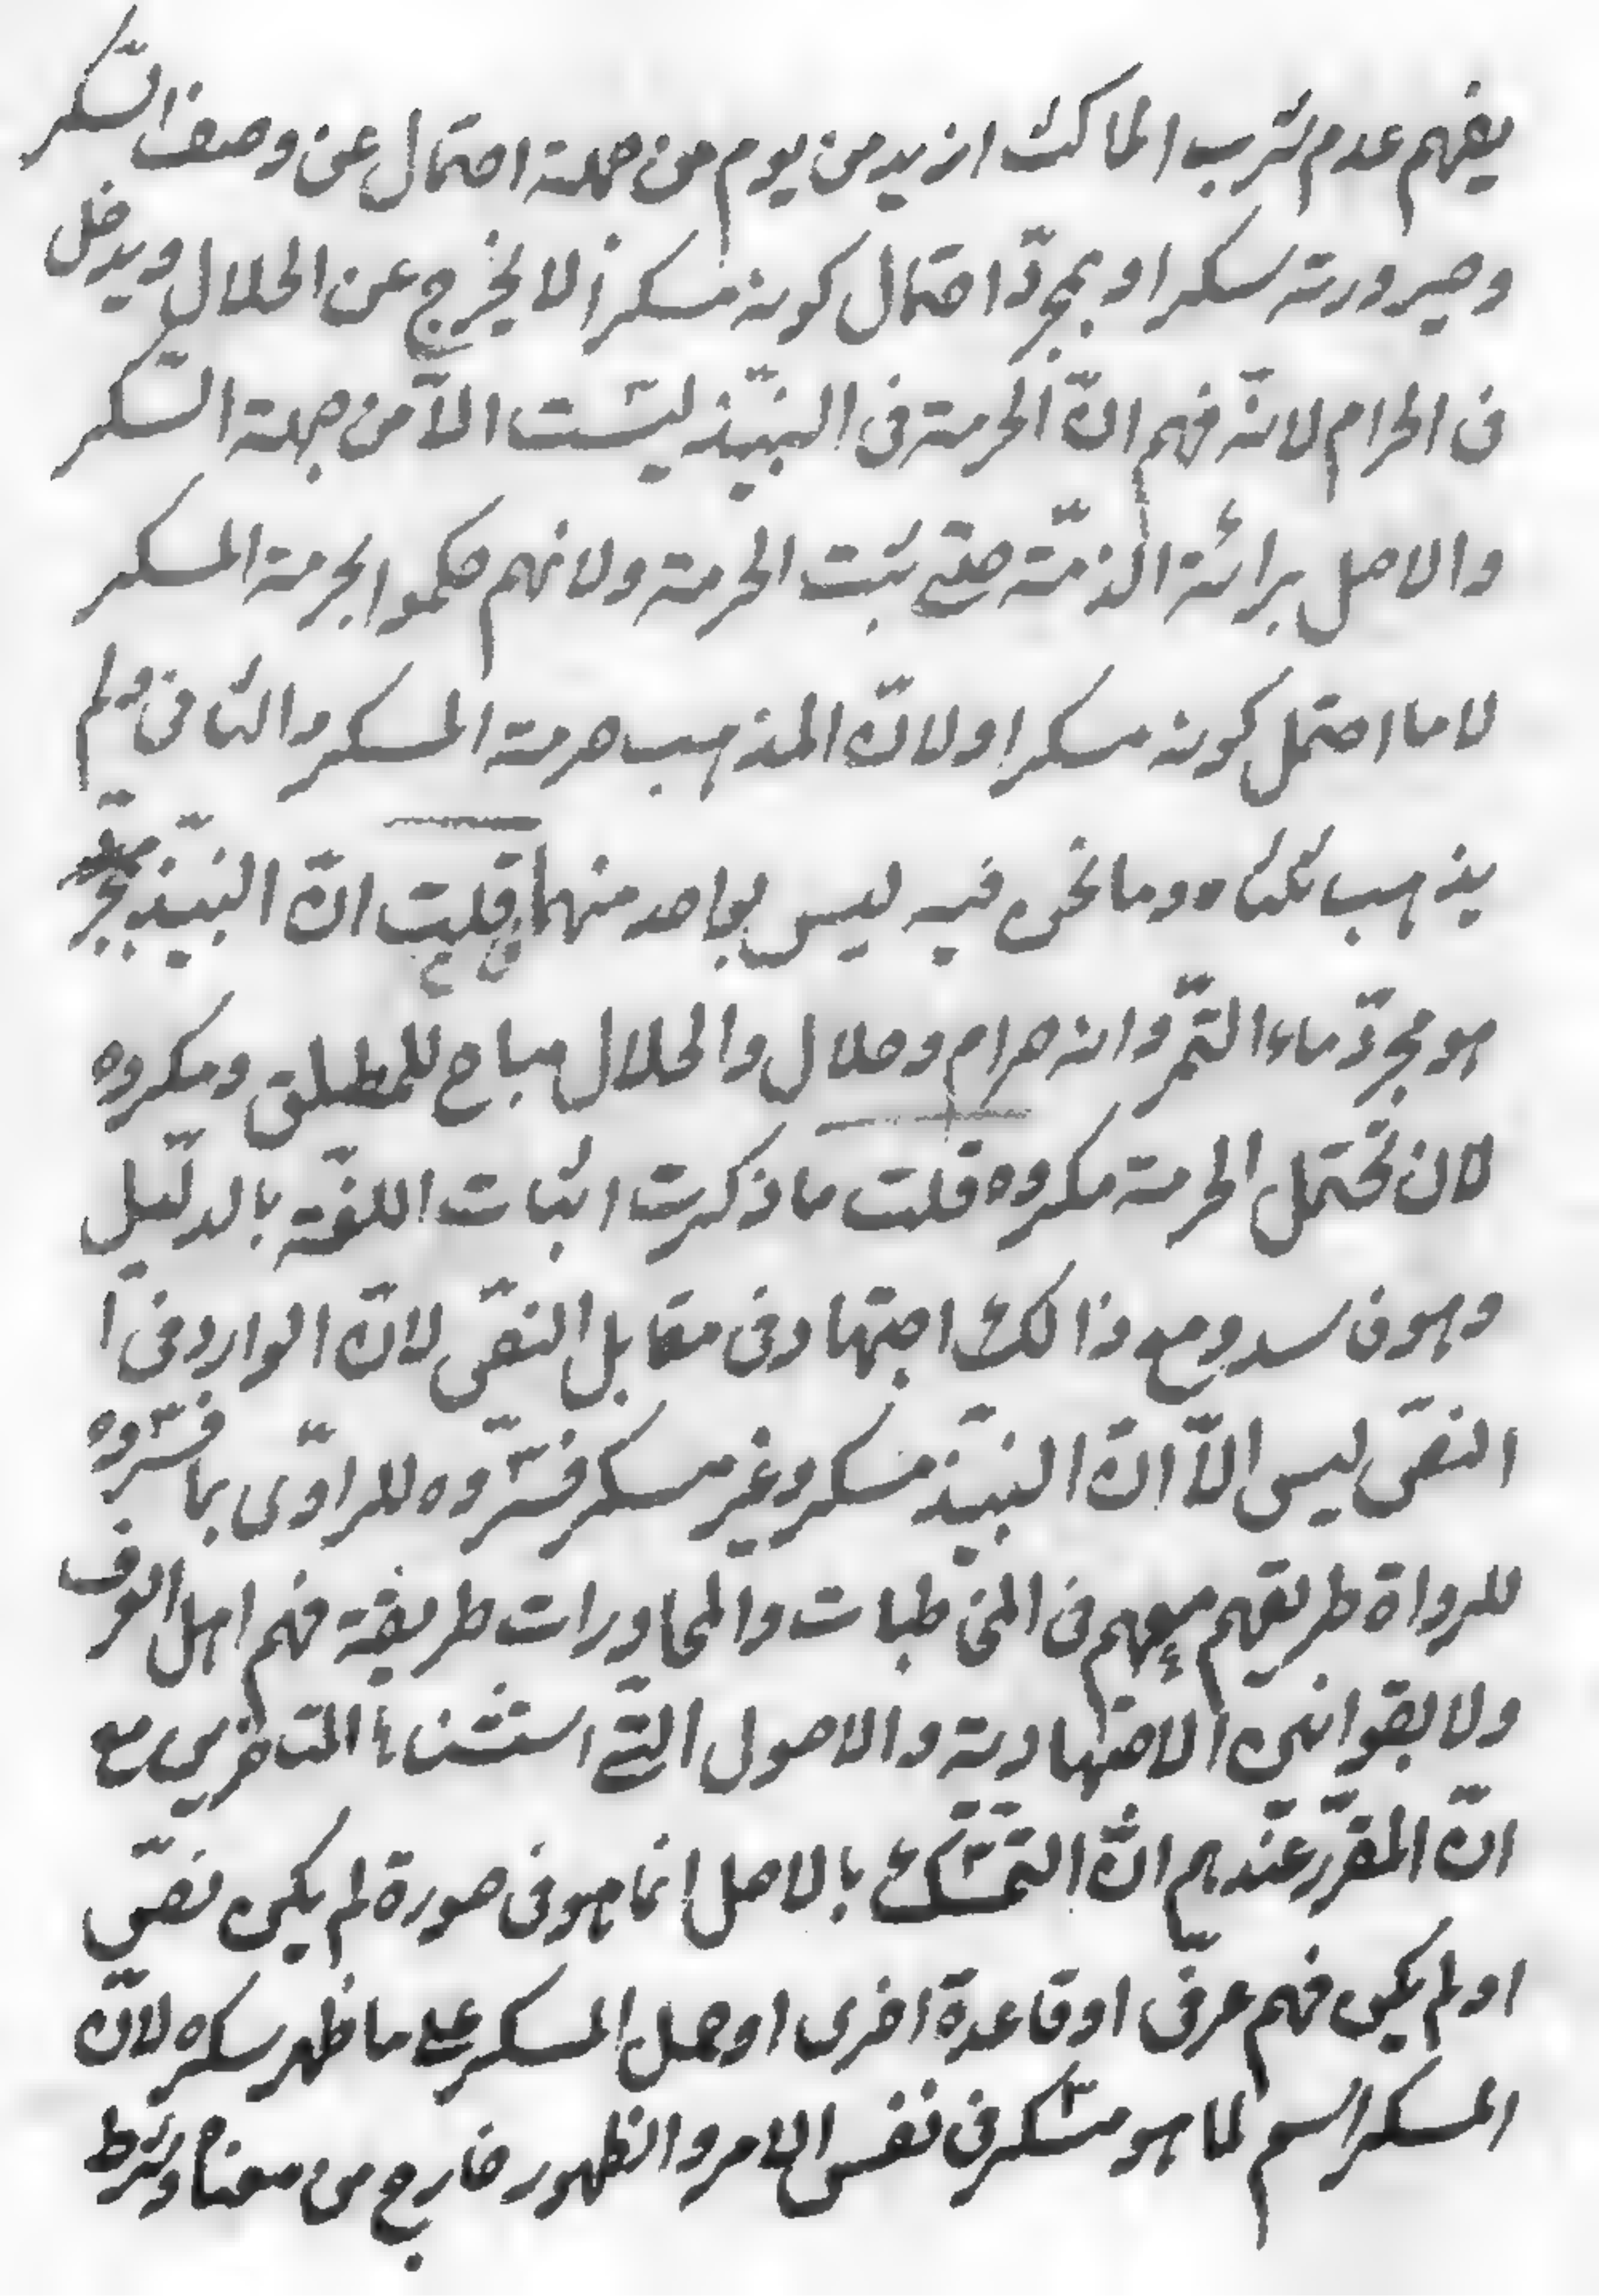 يفهم عدم شرب الماكث ازيد من يوم من جهة احتمال عن وصف السّكر
وصيرورته سكرا وبمجرّد احتمال كونه مسكراً لا يخرج عن الحلال ويدخل
فى الحرام لانّه فهم انّ الحرمة فى النبيّذ ليست الّا من جهة السّكر
والاصل برائة الذمّة حتّى يثبت الحرمة ولانهم حكموا بحرمة المسكر
لا ما احتمل كونه مسكرا ولانّ المذهب حرمة المسكر والثانى ولم
يذهب ثلثاه وما نحن فيه ليس بواحد منهما قلت انّ النبيّذ
هو مجرّد ماء التمّر وانه حرام وحلال والحلال مباح للمطلق ومكروه
لان تحتمل الحرمة مكروه قلت ما ذكرت اثبات اللغّة بالدليّل
وهو فاسد ومع ذالك اجتهاد فى مقابل النصّ لانّ الوارد فى ا
النصّ ليس الّا انّ النبيّذ مسكر وغير مسكر فسّروه للراوّى بما فسّروه
للرواة طريقهم معهم فى المخاطبات والمحاورات طريقة فهم اهل العرف
ولا بقوانين الاجتهادية والاصول التّى استثناها المتاخرين مع
انّ المقرّر عنّدهم انّ التمّسّك بالاصل انما هو فى صورة لم يكن نصّ
او لم يكن فهم عرفى او قاعدة اخرى او حمل المسكر على ما ظهر سكره لانّ
المسكر اسم لما هو مسّكر فى نفس الامر والظهور خارج من معناه وشرط